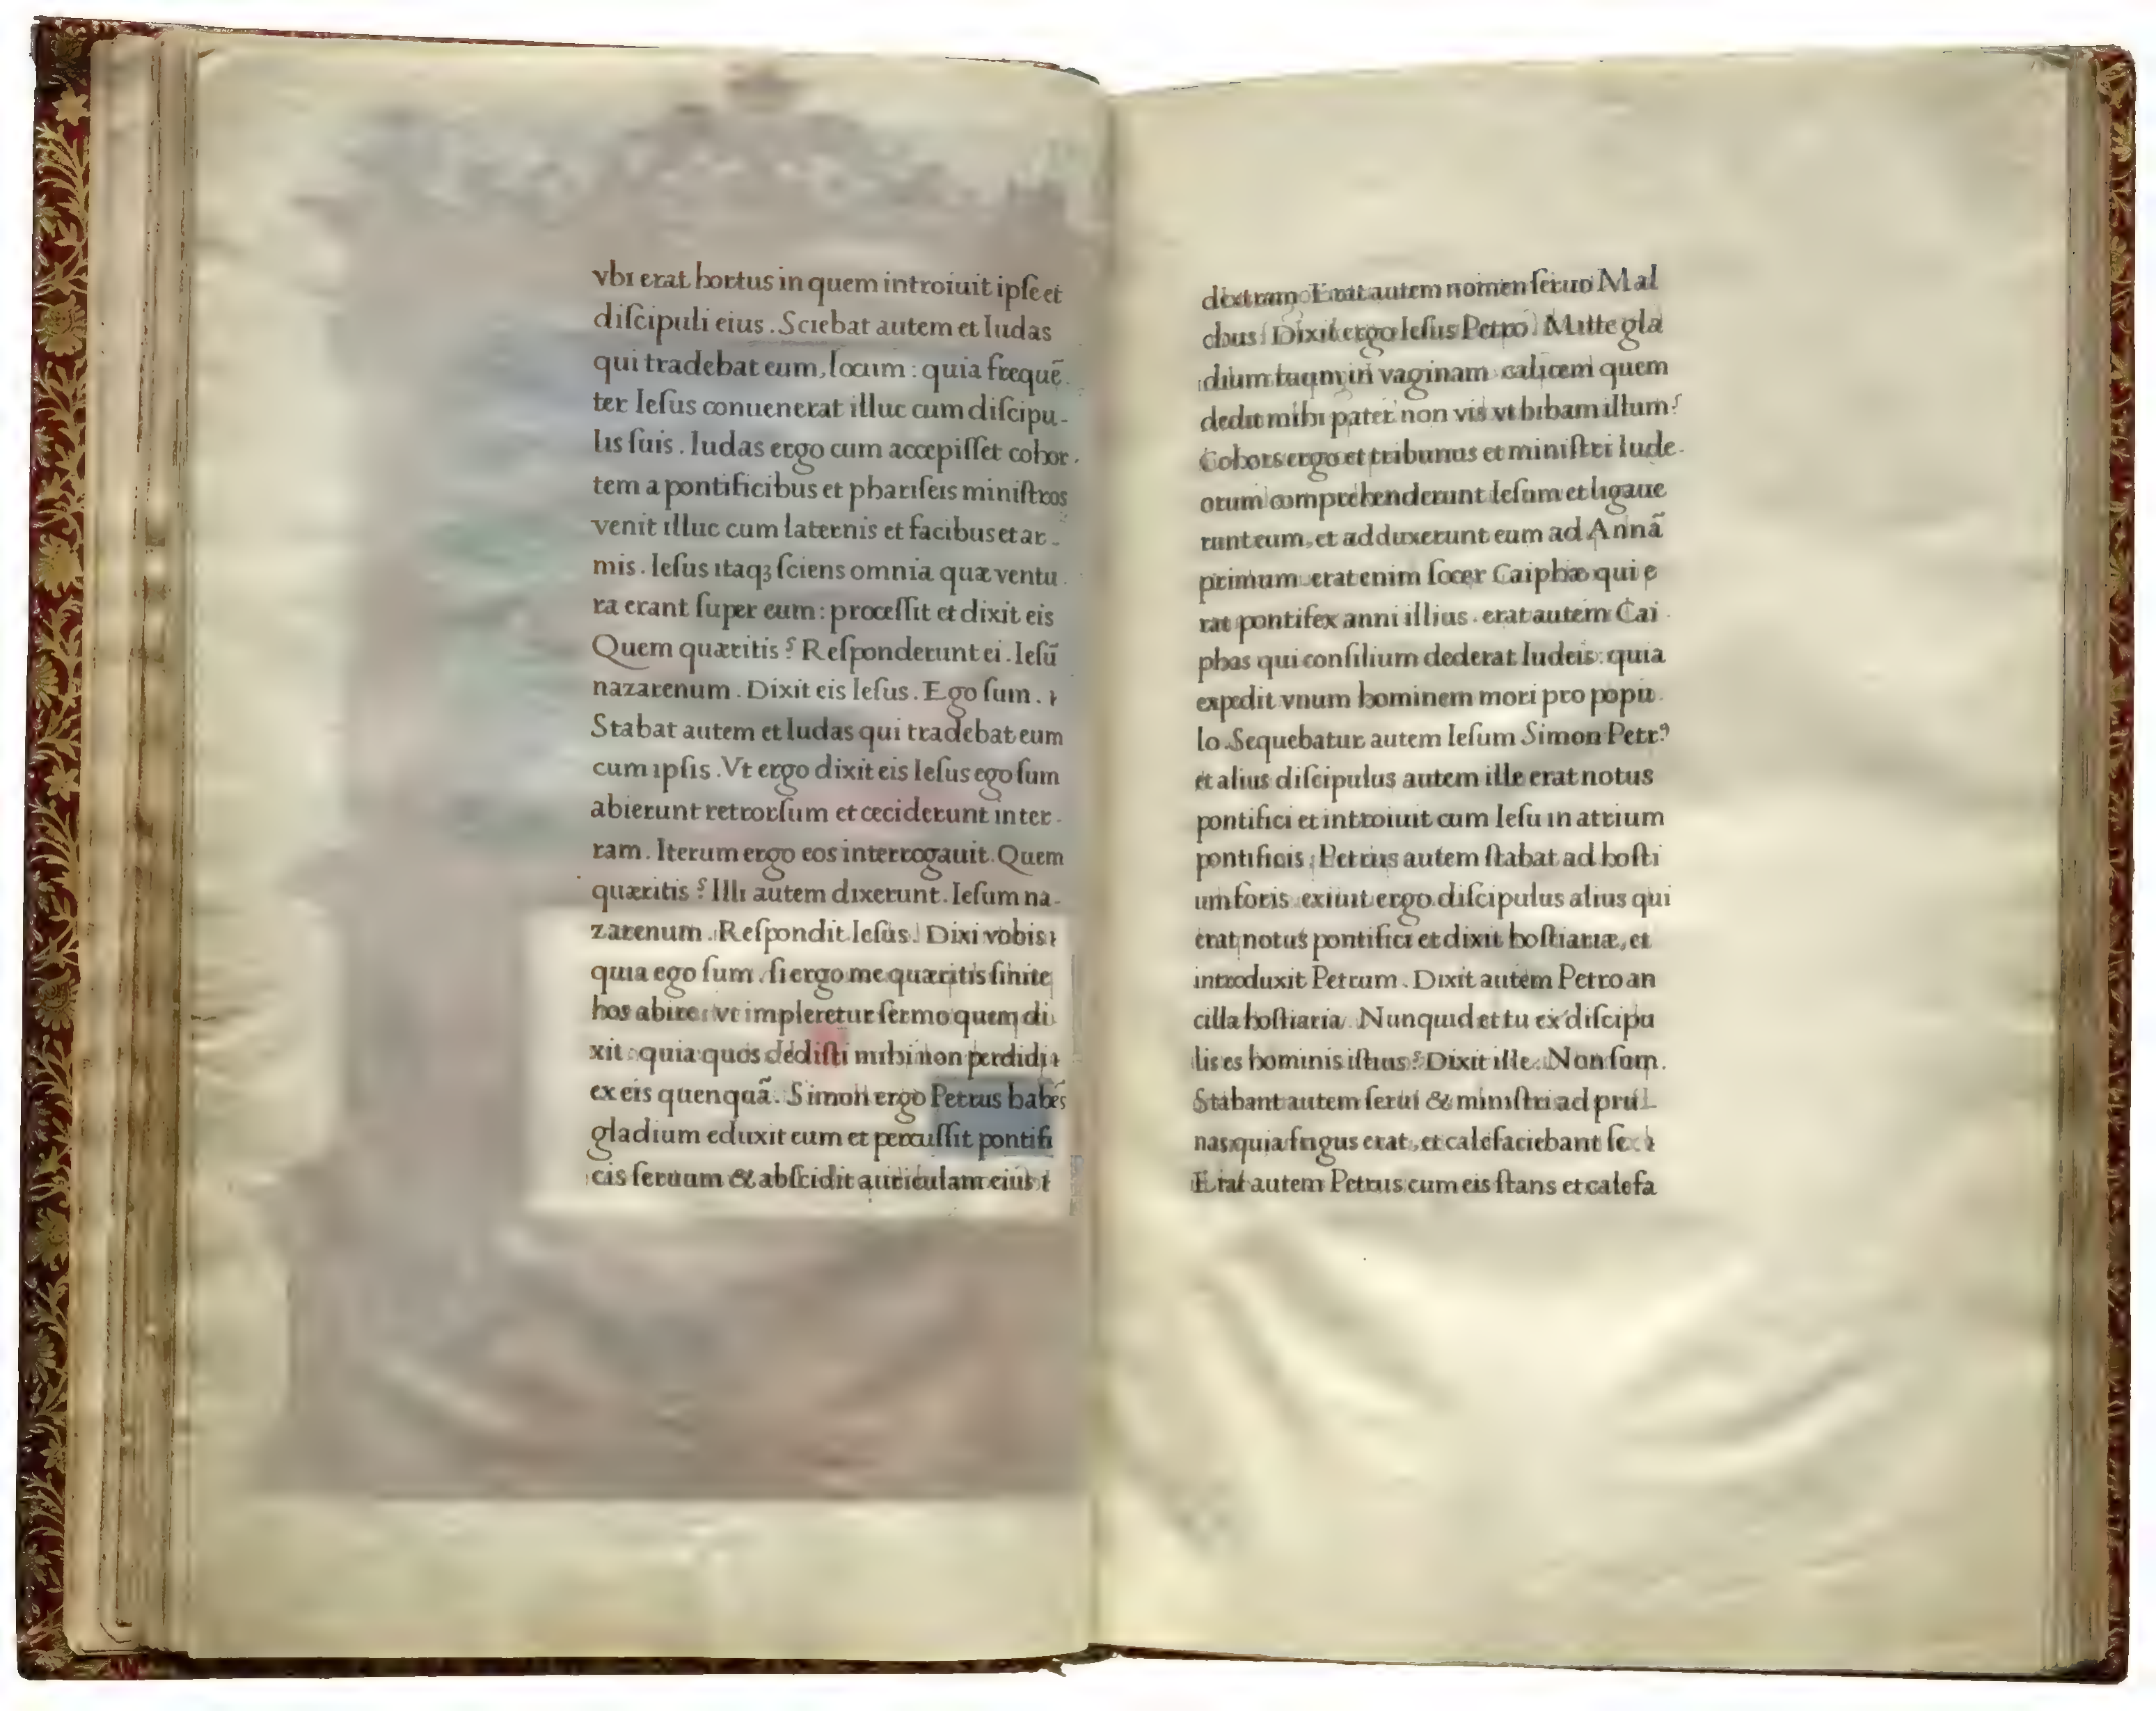 vbi erat hortus in quem introiuit ipſe et
diſcipuli eius . Sciebat autem et Iudas
qui tradebat eum, locum : quia frequẽ
ter Ieſus conuenerat illuc cum diſcipu-
lis ſuis . Iudas ergo cum accepiſſet cohor
tem a pontificibus et phariſeis miniſtros
venit illuc cum laternis et facibus et ar-
mis . Ieſus itaqꝫ ſciens omnia quæ ventu
ra erant ſuper eum : proceſſit et dixit eis
Quem quæritis ? Reſponderunt ei . Ieſũ
nazarenum . Dixit eis Ieſus . Ego ſum .
Stabat autem et Iudas qui tradebat eum
cum ipſis . Vt ergo dixit eis Ieſus ego ſum
abierunt retrorſum et ceciderunt in ter-
ram . Iterum ergo eos interrogauit . Quem
quæritis ? Illi autem dixerunt . Ieſum na-
zarenum . Reſpondit Ieſus . Dixi vobis
quia ego ſum . ſi ergo me quæritis ſinite
hos abire : vt impleretur ſermo quem di
xit : quia quos dediſti mihi non perdidi
ex eis quenquã . Simon ergo Petrus habẽs
gladium eduxit eum et percuſſit pontifi
cis ſeruum & abſcidit auriculam eius
dextram . Erat autem nomen ſeruo Mal
chus . Dixit ergo Ieſus Petro . Mitte gla
dium tuum in vaginam calicem quem
dedit mihi pater non vis vt bibam illum ?
Cohors ergo et tribunus et miniſtri Iude-
orum comprehenderunt Ieſum et ligaue
runt eum, et adduxerunt eum ad Annã
primum erat enim ſocer Caiphæ qui e
rat pontifex anni illius . erat autem Cai
phas qui conſilium dederat Iudeis : quia
expedit vnum hominem mori pro popu
lo . Sequebatur autem Ieſum Simon Petrꝰ
et alius diſcipulus autem ille erat notus
pontifici et introiuit cum Ieſu in atrium
pontificis : Petrus autem ſtabat ad hoſti
um foris exiuit ergo diſcipulus alius qui
erat notus pontifici et dixit hoſtiariæ, et
introduxit Petrum . Dixit autem Petro an
cilla hoſtiaria . Nunquid et tu ex diſcipu
lis es hominis iſtius ? Dixit ille . Non ſum .
Stabant autem ſerui & miniſtri ad pru
nas quia frigus erat, et calefaciebant ſe .
Erat autem Petrus cum eis ſtans et calefa